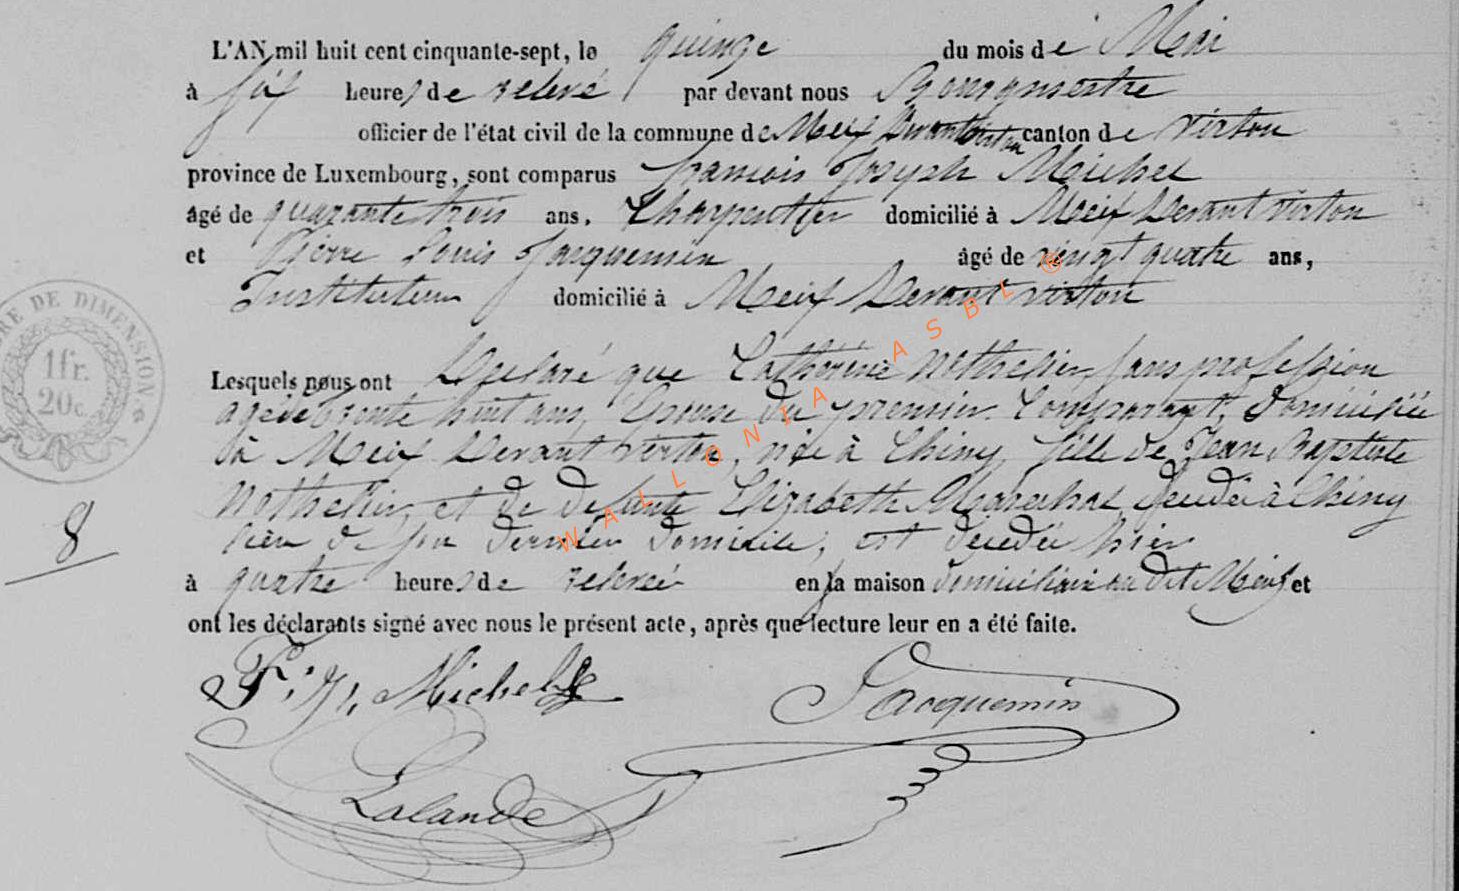 L'AN mil huit cent cinquante-sept, le quinze du mois de Mai
à six heures de relevé par devant nous Bourgmestre
officier de l'état civil de la commune de Meix Devant Virton canton de Virton
province de Luxembourg, sont comparus francois Joseph Michel
âgé de quarante trois ans, Charpentier domicilié à Meix Devant Virton
et Pierre Louis Jacquemin âgé de vingt quatre ans,
Instituteur domicilié à Meix Devant Virton
Lesquels nous ont Declaré que Catherine Nothesin sans profession
agée de trente huit ans, Epouse du premier Comparant, domiciliée
à Meix Devant Virton, née à Chiny, fille de Jean Baptiste
Nothesin, et de defunte Elizabeth Marechal decedée à Chiny
lieu de son dernier domicile, est décédée hier
à quatre heures de relevée en sa maison domiciliaire au dit Meix et
ont les déclarants signé avec nous le présent acte, après que lecture leur en a été faite.
F. J. Michel Jacquemin
Lalande
8
TIMBRE DE DIMENSION.
1fr.
20c.
WALLONIA ASBL ®